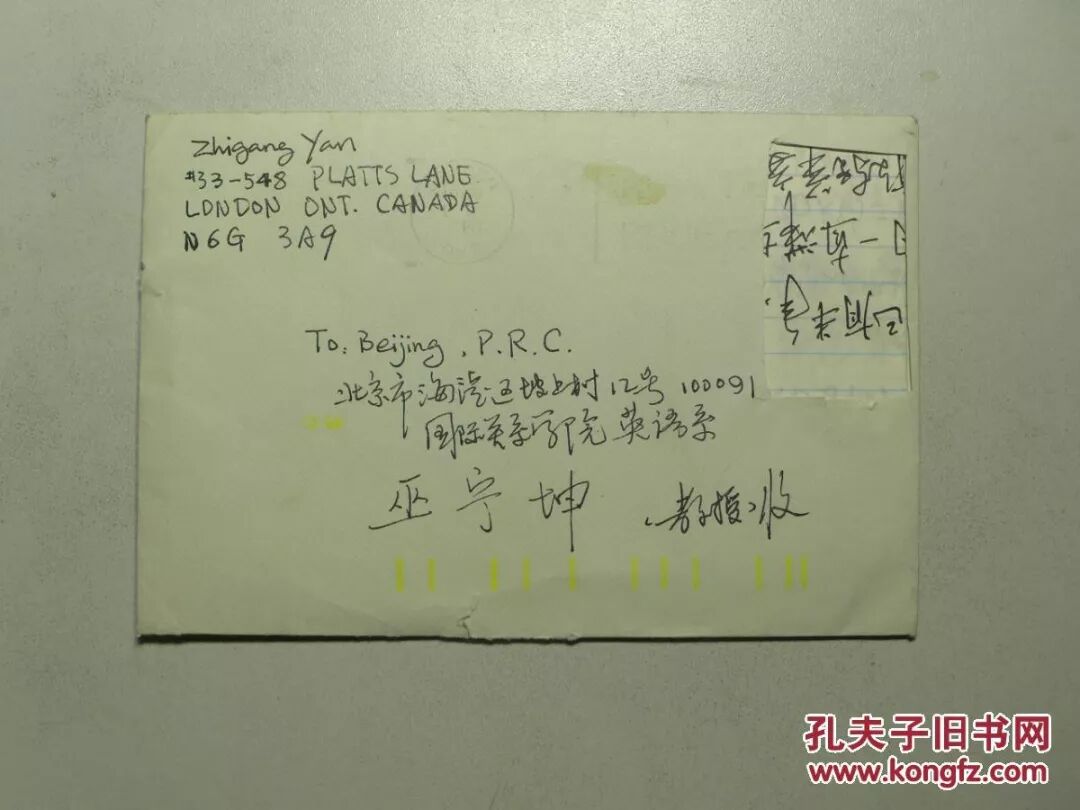 Zhigang Yan
#33-548 PLATTS LANE
LONDON ONT. CANADA
N6G 3A9
To: Beijing, P.R.C.
北京市海淀区坡上村12号 100091
国际关系学院英语系
巫宁坤 (教授) 收
孔夫子旧书网
www.kongfz.com